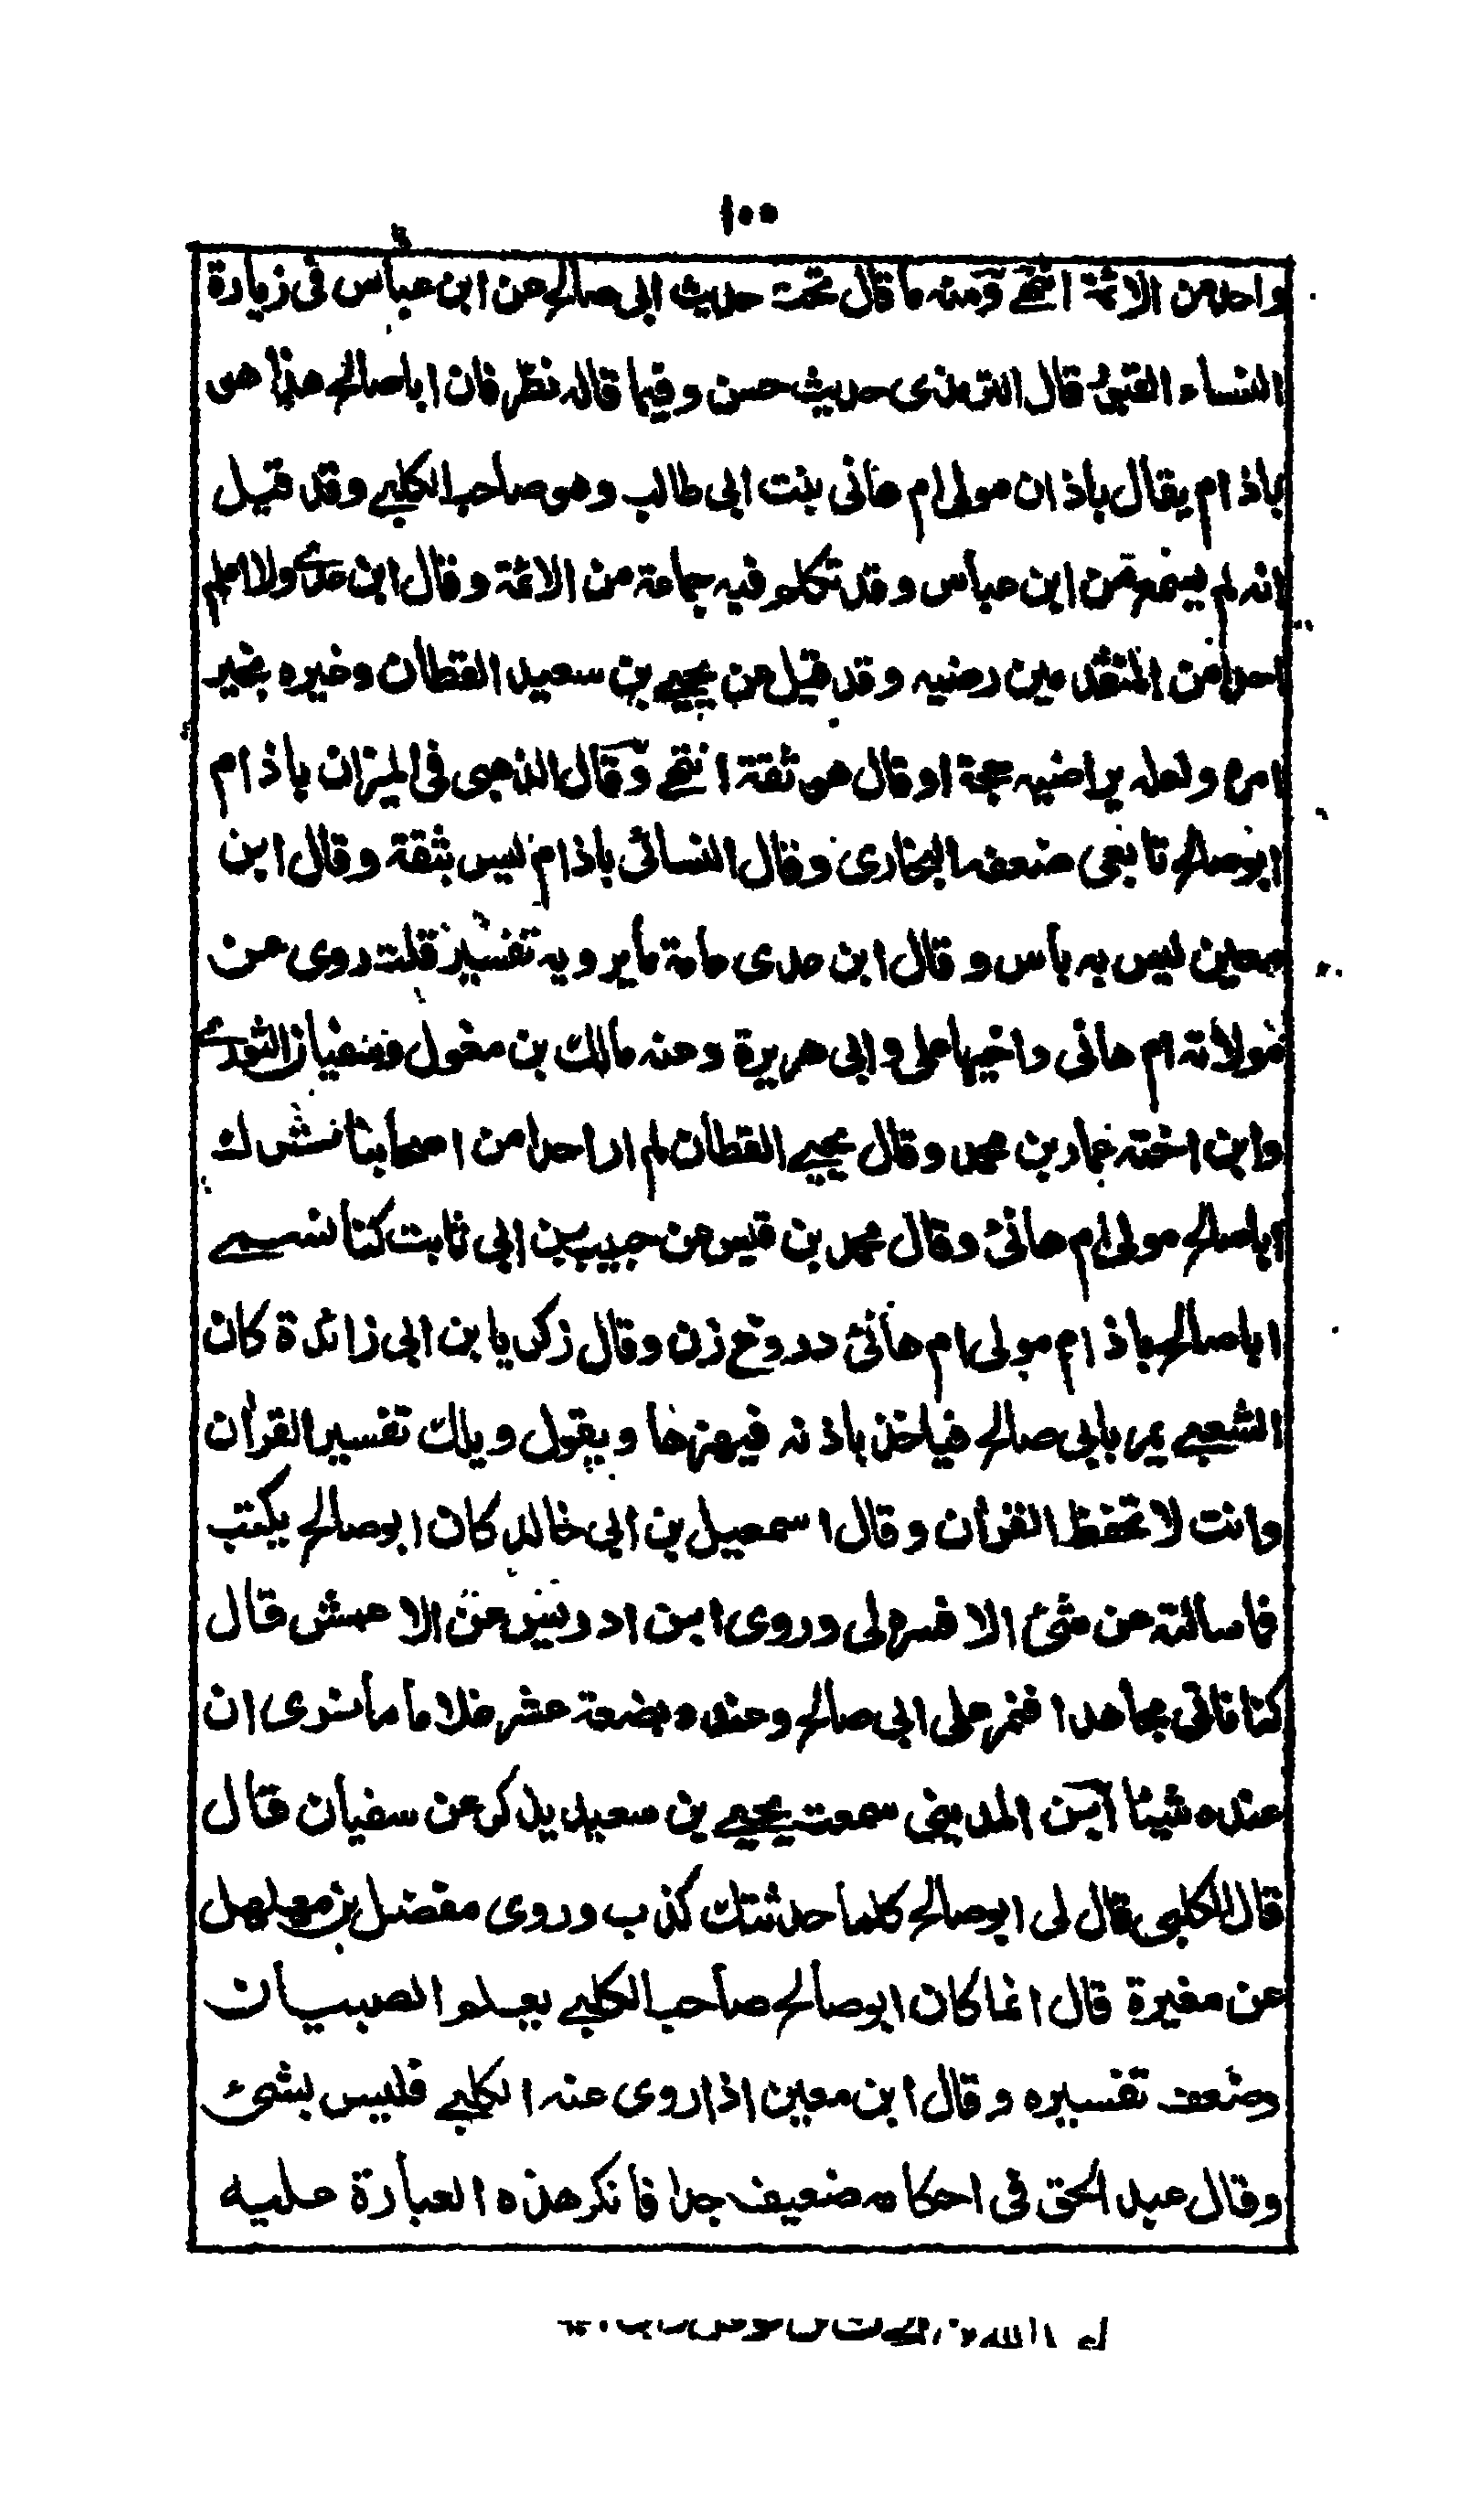 ١٠٠
واحد من الائمة انتهى ومنه ما قال تحت حديث ابى صالح عن ابن عباس فى زيارة
النساء القبور قال الترمذى حديث حسن وفيما قاله نظر فان ابا صالح هذا هو
باذام يقال باذان مولى ام هانى بنت ابى طالب وهو صاحب الكلبى وقد قيل
انه لم يسمع من ابن عباس وقد تكلم فيه جماعة من الائمة وقال ابن عدى ولا اعلم
احدا من المتقدمين رضيه وقد قيل عن يحيى بن سعيد القطان وغيره بخير
امره ولعله يراضيه حجة او قال هو ثقة انتهى وقال الذهبى فى الميزان باذام
ابو صالح تابعى ضعفه البخارى وقال النسائى باذام ليس بثقة وقال ابن
معين ليس به بأس وقال ابن عدى عامة ما يرويه تفسير قلت روى عن
مولاته ام هانى واخيها على وابى هريرة وعنه مالك بن مغول وسفيان الثورى
وابن اخته عمار بن محمد وقال يحيى القطان لم ار احدا من اصحابنا ترك
ابا صالح مولى ام هانئ وقال محمد بن قيس عن حبيب بن ابى ثابت كنا نسمى
ابا صالح باذام مولى ام هانئ دروغ زن وقال زكريا بن ابى زائدة كان
الشعبى يمر بابى صالح فياخذ باذنه فيهزها ويقول ويلك تفسير القرآن
وانت لا تحفظ القرآن وقال اسمعيل بن ابى خالد كان ابو صالح يكتب
فما سالته عن شئ الا فسره لى وروى ابن ادريس عن الاعمش قال
كنا ناتى مجاهدا فنمر على ابى صالح وعنده بضعة عشر غلاما ما نرى ان
عنده شيئا ابن المدينى سمعت يحيى بن سعيد يذكر عن سفيان قال
قال الكلبى قال لى ابو صالح كلما حدثتك كذب وروى مفضل بن مهلهل
عن مغيرة قال انما كان ابو صالح صاحب الكلبى يعلم الصبيان
وضعف تفسيره وقال ابن معين اذا روى عنه الكلبى فليس بشئ
وقال عبد الحق فى احكامه ضعيف جدا فانكر هذه العبارة عليه